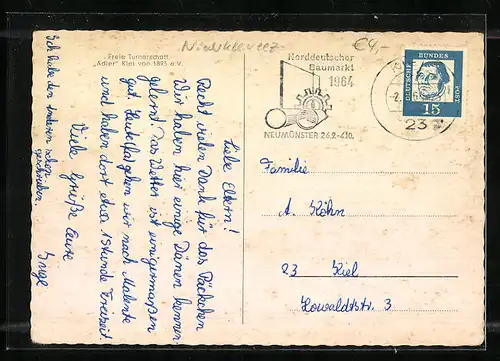 €4,-
Freie Turnerschaft
"Adler" Kiel von 1893 e.V.
Norddeutscher
Baumarkt
1964
NEUMÜNSTER 26.9.-4.10.
23
DEUTSCHE
BUNDES
POST
15
Liebe Eltern!
Recht vielen Dank für das Päckchen
Wir haben hier einige Dänen kennen-
gelernt. Das Wetter ist einigermaßen
gut. Heute fahren wir nach Malente
und haben dort etwa 1 Stunde Freizeit.
Viele Grüße Eure
Inge
Ich habe den anderen schon
geschrieben.
Familie
A. Köhn
23 Kiel
Howaldtstr. 3